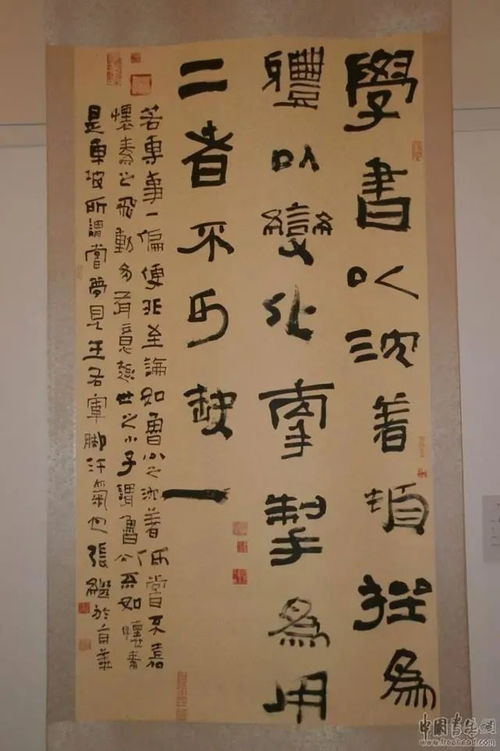 學書以沈着頓挫為
體以變化牽掣為用
二者不可缺一
若專事一偏便非至論如魯公之沈着何嘗不嘉
懷素之飛動多有意趣世之小子謂魯公不如懷素
是東坡所謂嘗夢見王右軍脚汗氣也張繼於